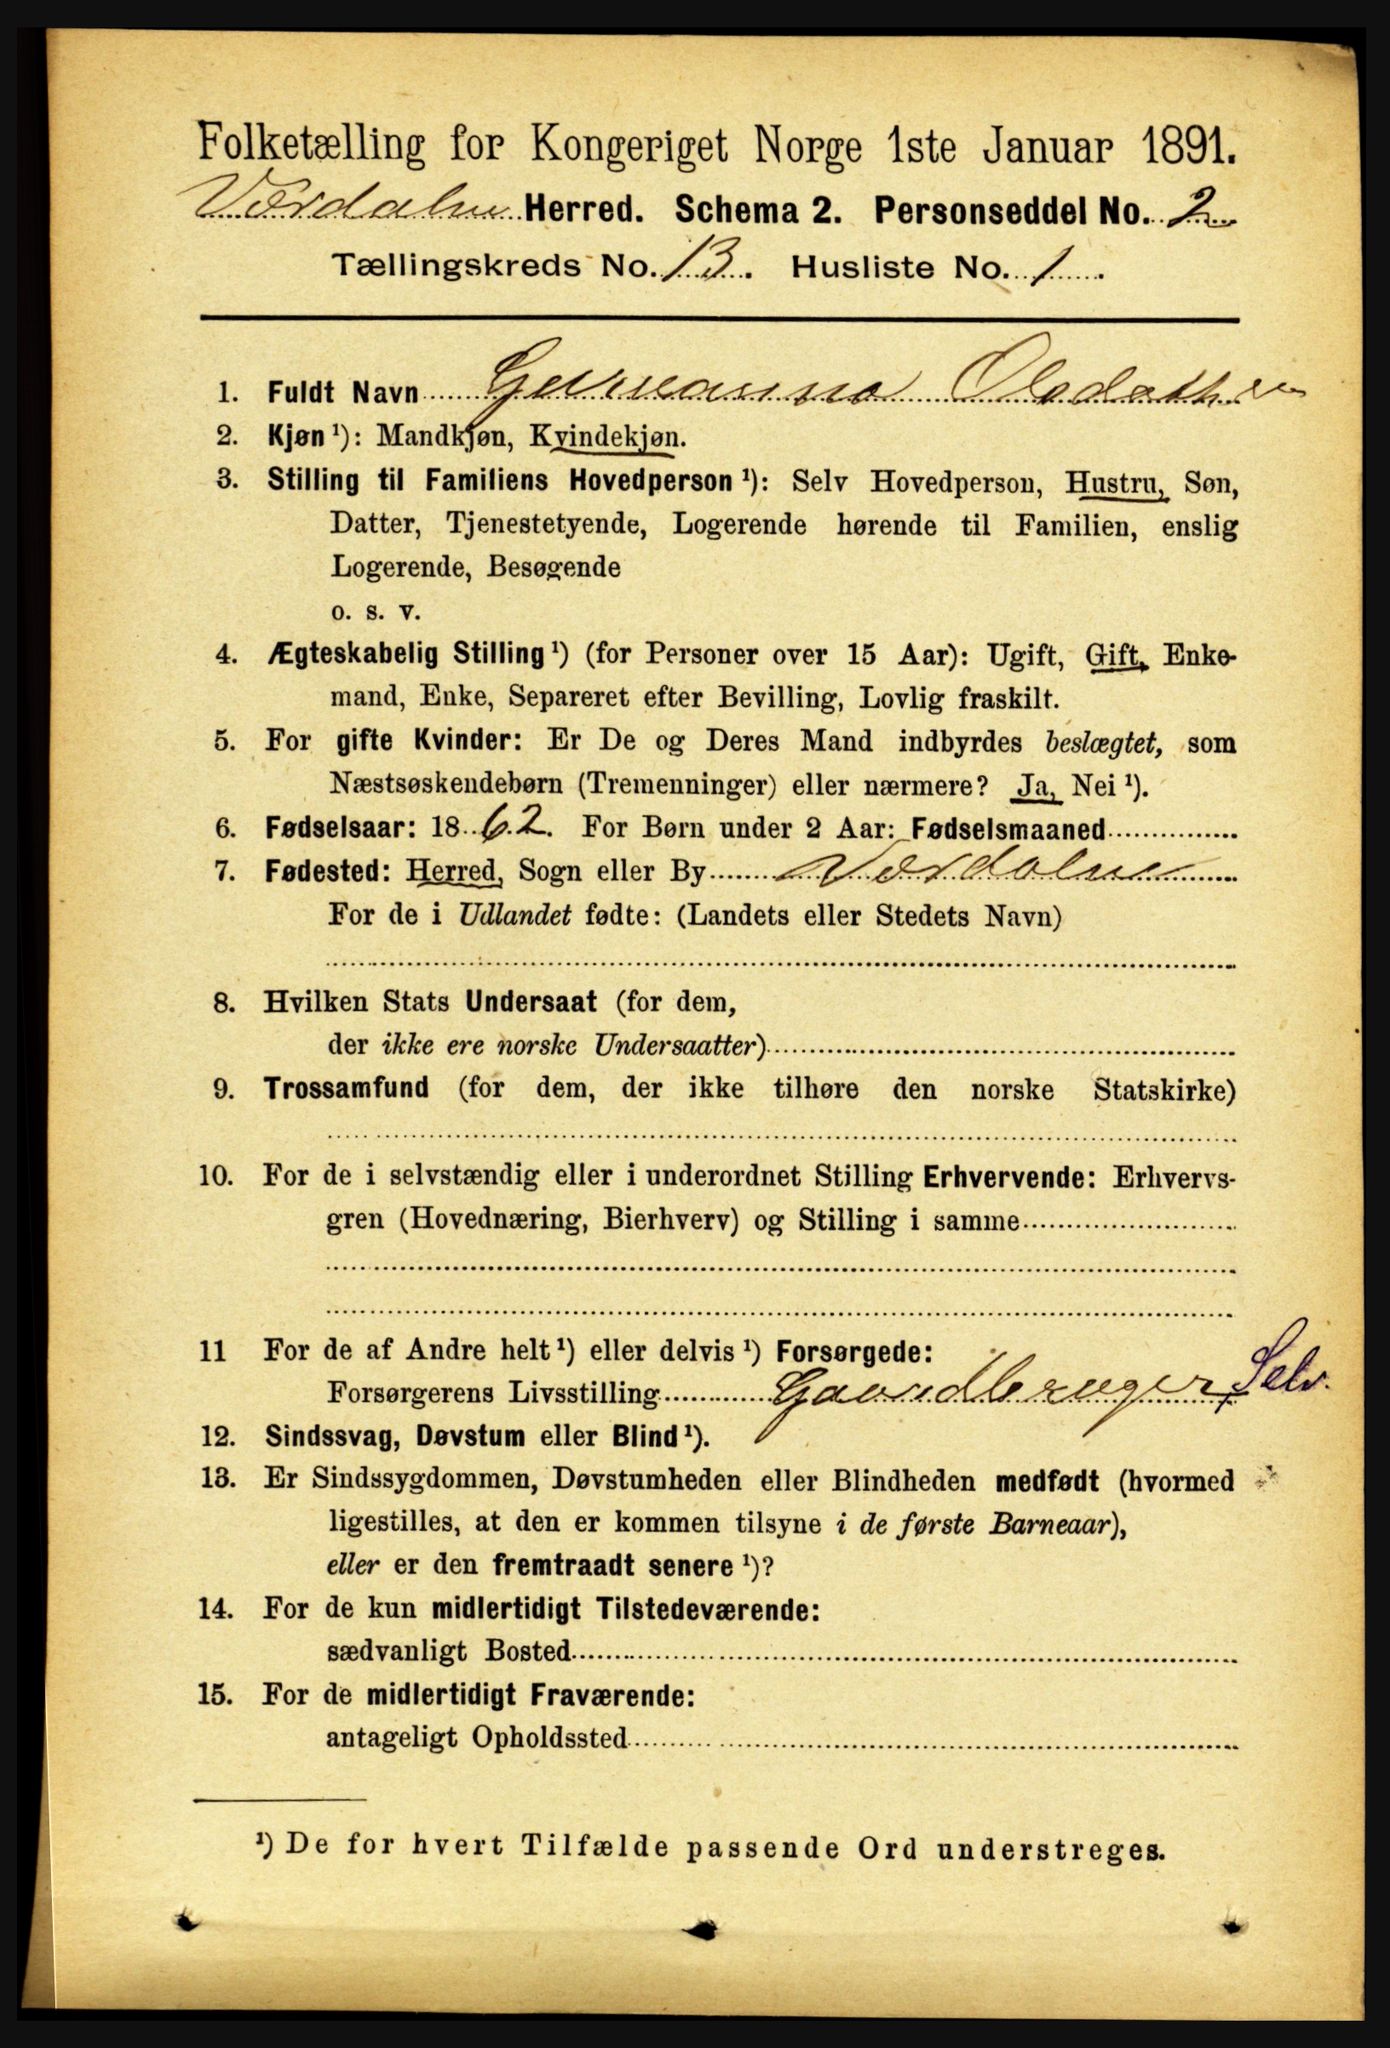 Folketælling for Kongeriget Norge 1ste Januar 1891.
Værdalen Herred. Schema 2. Personseddel No. 2
Tællingskreds No. 13. Husliste No. 1.
1. Fuldt Navn Olsdatter
2. Kjøn ¹): Mandkjøn, Kvindekjøn.
3. Stilling til Familiens Hovedperson ¹): Selv Hovedperson, Hustru, Søn,
Datter, Tjenestetyende, Logerende hørende til Familien, enslig
Logerende, Besøgende
o. s. v.
4. Ægteskabelig Stilling ¹) (for Personer over 15 Aar): Ugift, Gift, Enke-
mand, Enke, Separeret efter Bevilling, Lovlig fraskilt.
5. For gifte Kvinder: Er De og Deres Mand indbyrdes beslægtet, som
Næstsøskendebørn (Tremenninger) eller nærmere? Ja, Nei ¹).
6. Fødselsaar: 1862. For Børn under 2 Aar: Fødselsmaaned
7. Fødested: Herred, Sogn eller By Værdalen
For de i Udlandet fødte: (Landets eller Stedets Navn)
8. Hvilken Stats Undersaat (for dem,
der ikke ere norske Undersaatter)
9. Trossamfund (for dem, der ikke tilhøre den norske Statskirke)
10. For de i selvstændig eller i underordnet Stilling Erhvervende: Erhvervs-
gren (Hovednæring, Bierhverv) og Stilling i samme
11 For de af Andre helt ¹) eller delvis ¹) Forsørgede:
Forsørgerens Livsstilling Gaardbruger, Selv.
12. Sindssvag, Døvstum eller Blind ¹).
13. Er Sindssygdommen, Døvstumheden eller Blindheden medfødt (hvormed
ligestilles, at den er kommen tilsyne i de første Barneaar),
eller er den fremtraadt senere ¹)?
14. For de kun midlertidigt Tilstedeværende:
sædvanligt Bosted
15. For de midlertidigt Fraværende:
antageligt Opholdssted
¹) De for hvert Tilfælde passende Ord understreges.